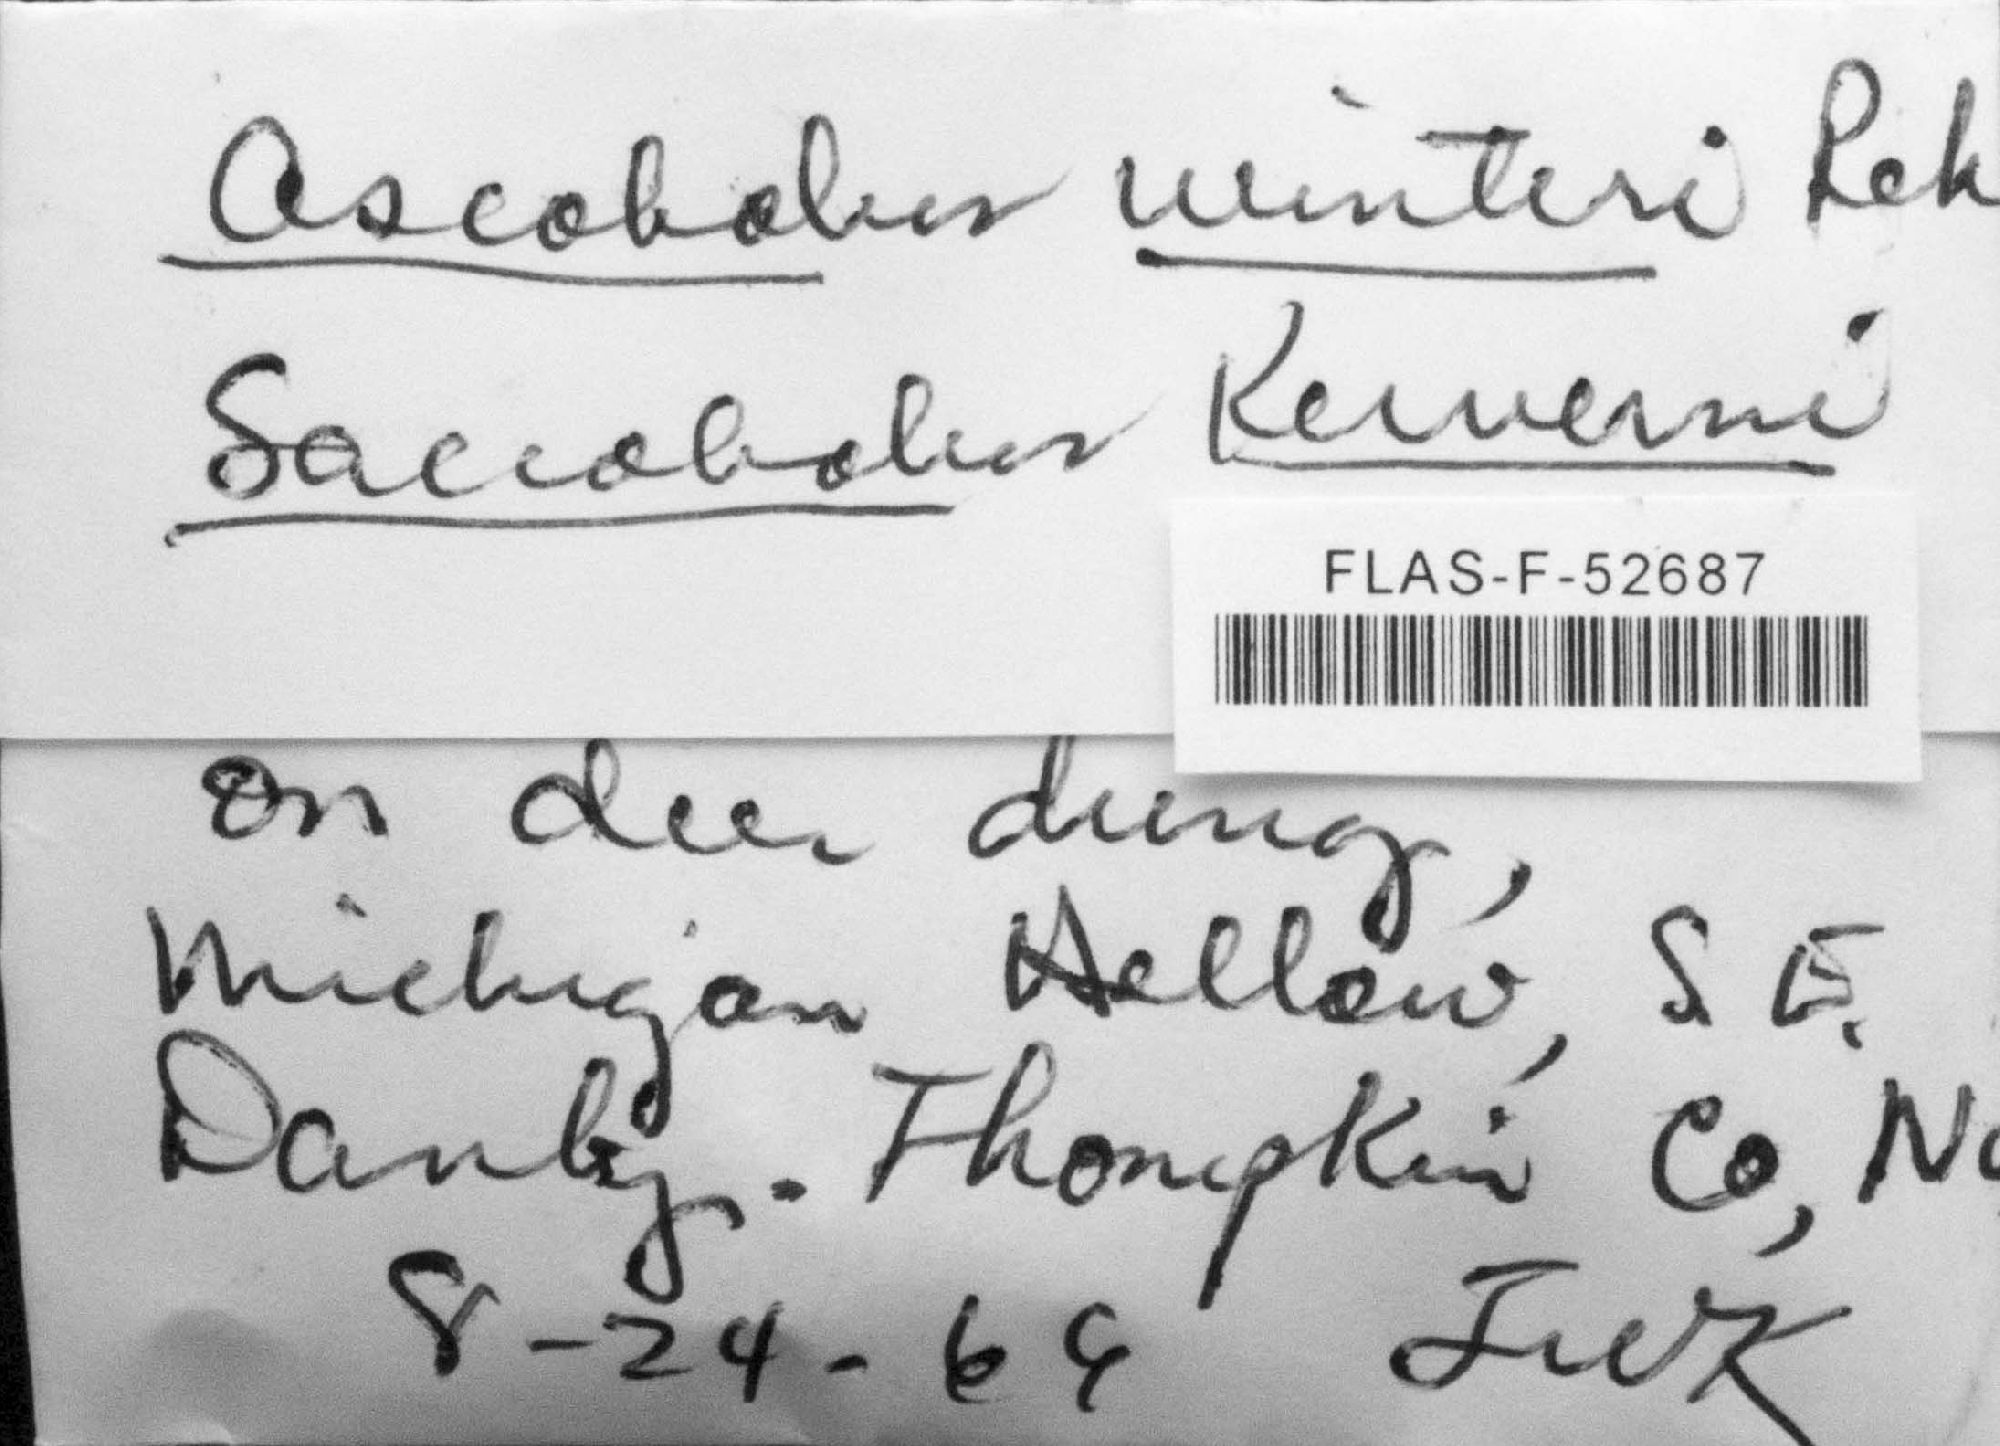 Ascobolus winteri Reh
Saccobolus Kerverni
FLAS-F-52687
on deer dung,
Michigan Hollow, S E.
Danby. Thompkin Co, N
8-24-69 JWK